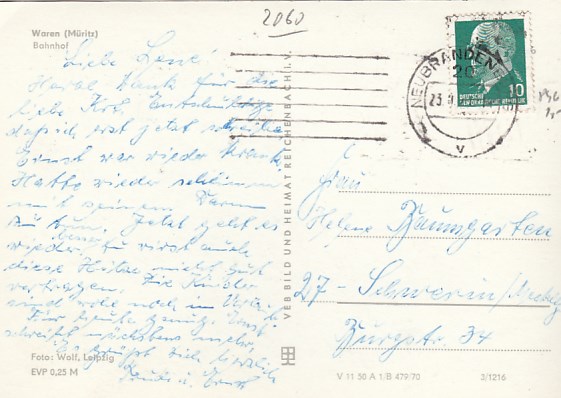 2060
Waren (Müritz)
Bahnhof
Liebe Lene!
Herzl. Dank für die
liebe Krt. Entschuldige
daß ich erst jetzt schreibe.
Ernst war wieder krank.
Hatte wieder schlimm
mit seinem Darm
zu tun. Jetzt geht es
wieder besser. Du wirst auch
diese Hitze nicht gut
vertragen. Die Kinder
sind wohl noch in Urlaub.
Für heute genug. Ernst
schreibt nächstens mehr.
Es grüßt Dich herzlich
u. Ernst
Foto: Wolf, Leipzig
EVP 0,25 M
VEB BILD UND HEIMAT REICHENBACH i. V.
NEUBRANDENB
20
23.
v
10
DEUTSCHE
DEMOKRATISCHE REPUBLIK
Frau
Helene Baumgarten
27 - Schwerin/Meckl
Burgstr. 34
V 11 50 A 1/B 479/70
3/1216